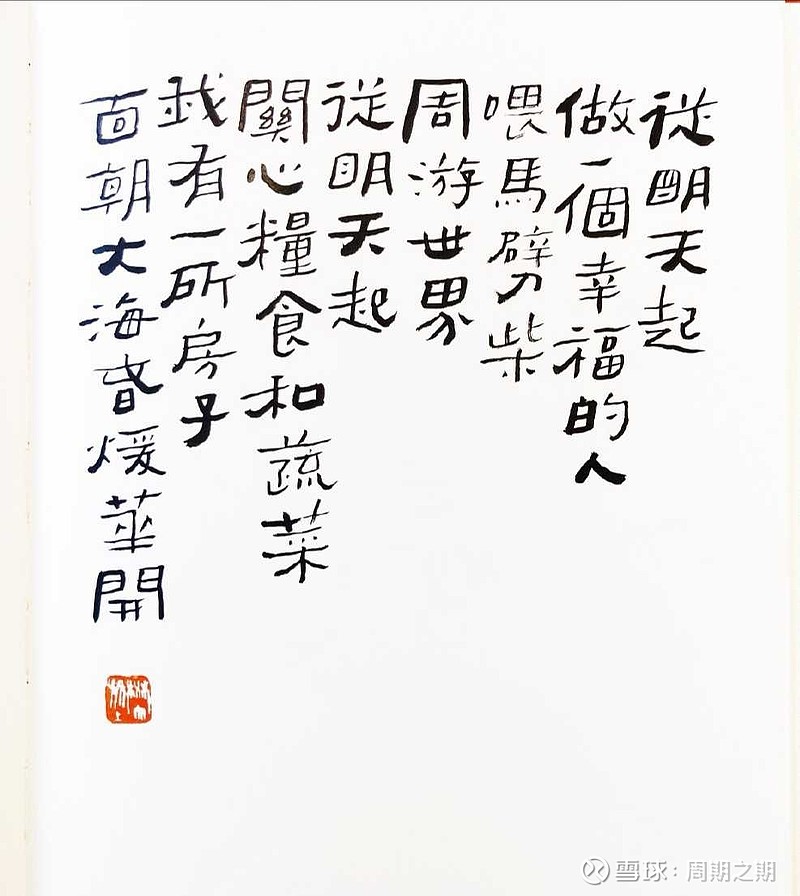 從明天起
做一個幸福的人
喂馬劈柴
周游世界
從明天起
關心糧食和蔬菜
我有一所房子
面朝大海春煖華開
雪球：周期之期